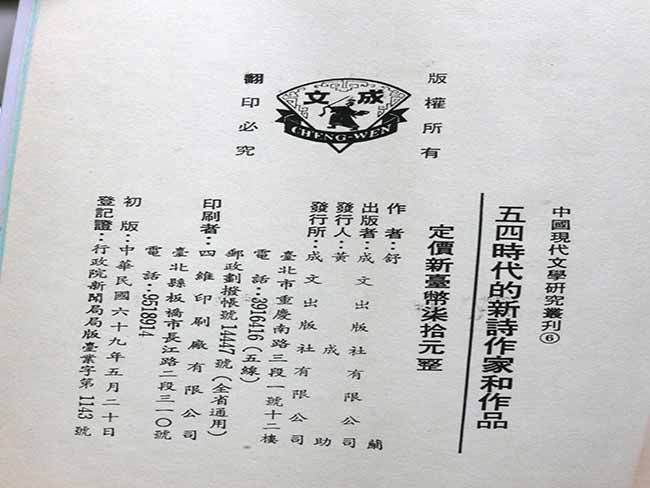 中國現代文學研究叢刊⑥
五四時代的新詩作家和作品
定價新臺幣柒拾元整
作者：舒蘭
出版者：成文出版社有限公司
發行人：黃成助
發行所：成文出版社有限公司
臺北市重慶南路三段一號十二樓
電話：3916416（五線）
郵政劃撥帳號14447號（全省通用）
印刷者：四維印刷廠有限公司
臺北縣板橋市長江路二段三一〇號
電話：9518914
初版：中華民國六十九年五月二十日
登記證：行政院新聞局局版臺業字第1143號
版權所有
文成
CHENG-WEN
翻印必究